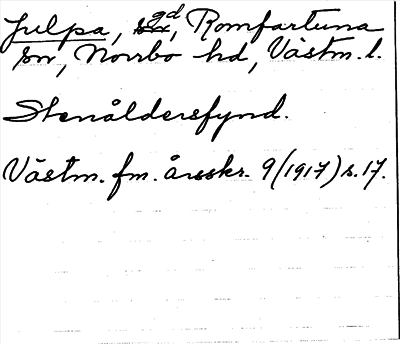 Julpa, gd, Romfartuna
sn, Norrbo hd, Västm. l.
Stenåldersfynd.
Västm. fm. årsskr. 9 (1917) s. 17.